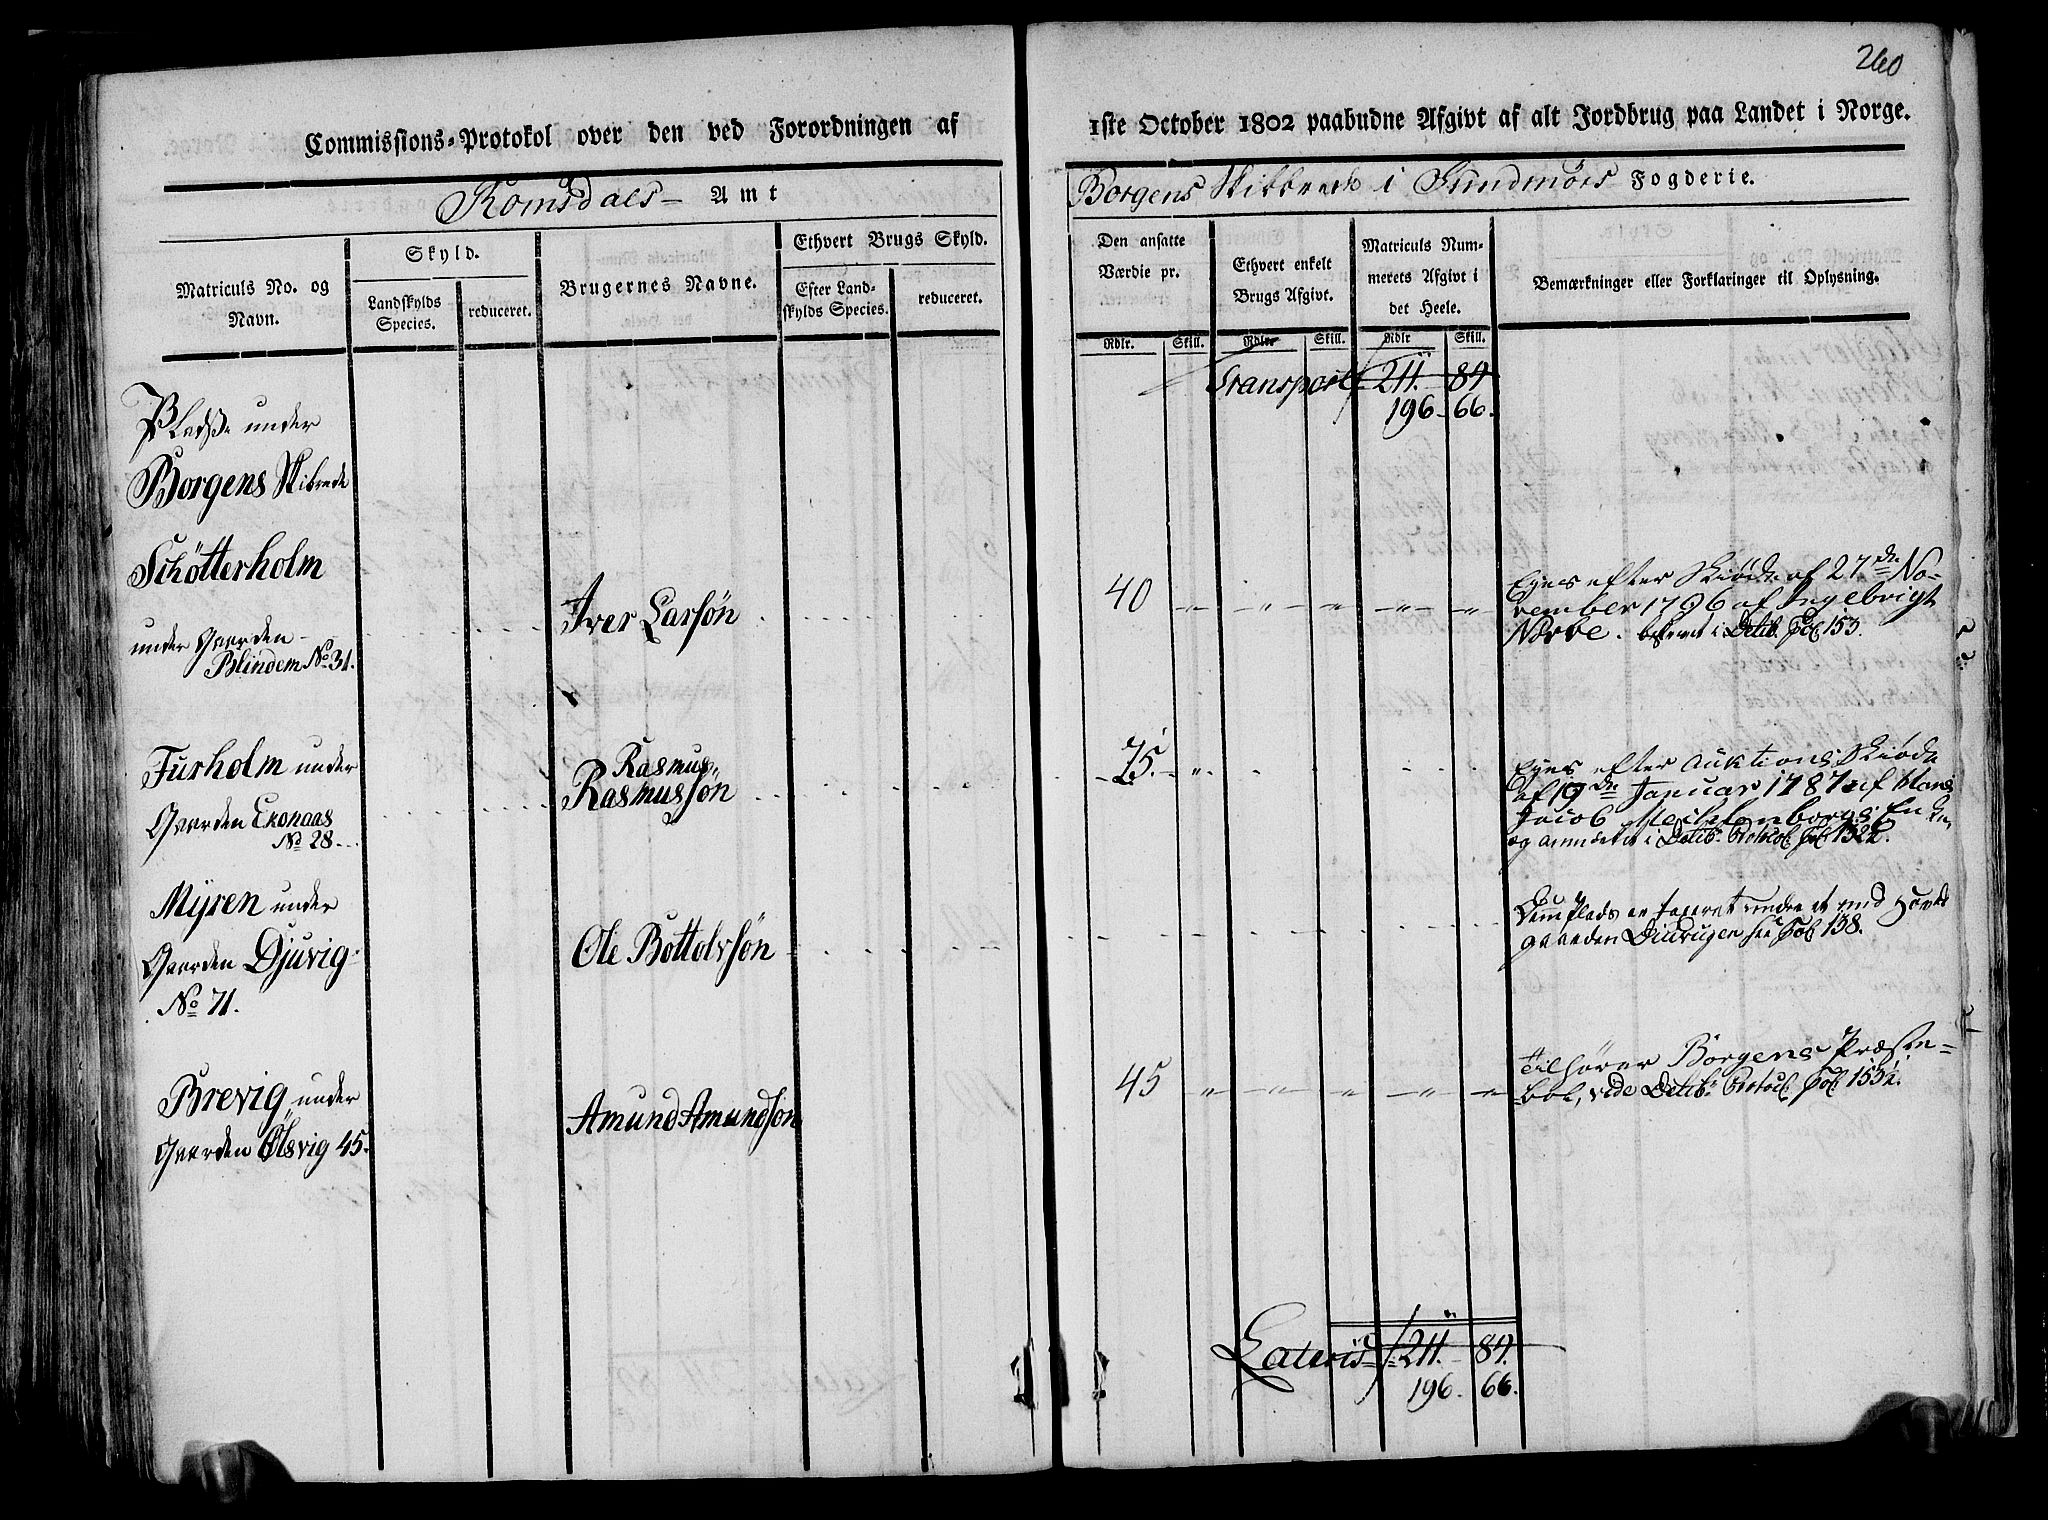 260
Commissions-Protokol over den ved Forordningen af
1ste October 1802 paabudne Afgivt af alt Jordbrug paa Landet i Norge.
Romsdals- Amt
Borgens Skibbrede i Sundmörs Fogderie.
Matriculs No. og Navn.
Skyld.
Landskylds Species.
reduceret.
Brugernes Navne.
Ethvert Brugs Skyld.
Efter Landskylds Species.
reduceret.
Den ansatte Værdie pr.
Ethvert enkelt Brugs Afgivt.
Matriculs Nummerets Afgivt i det Heele.
Bemærkninger eller Forklaringer til Oplysning.
Rdlr. Skill. Rdlr. Skill. Rdlr. Skill.
Transport 211. 84
196 - 66.
Pladse under
Borgens Skibrede
Schötterholm
under Gaarden
Blindem No 31.
Iver Larsön
40
Eyes efter Skiöde af 27de No-
vember 1796 af Ingebrigt
Nörve. i Delib. Fol 153.
Furholm under
Gaarden Exonaas
No 28
Rasmus
Rasmussön
25.
Eyes efter Auktions Skiöde
af 19de Januar 1787 af Hans
Jacob Enke,
og i Delib. Protocol Fol
Myren under
Gaarden Djuvig
No 71.
Ole Bottolvsön
Denne Plads er taxeret under et med Hoved
gaarden see Fol 138.
Brevig under
Gaarden Ølsvig 45.
Amund Amundsön
45
Tilhörer Borgens Præste-
bol, vide Delib. Protocol Fol
Lateris 211. 84.
196. 66.